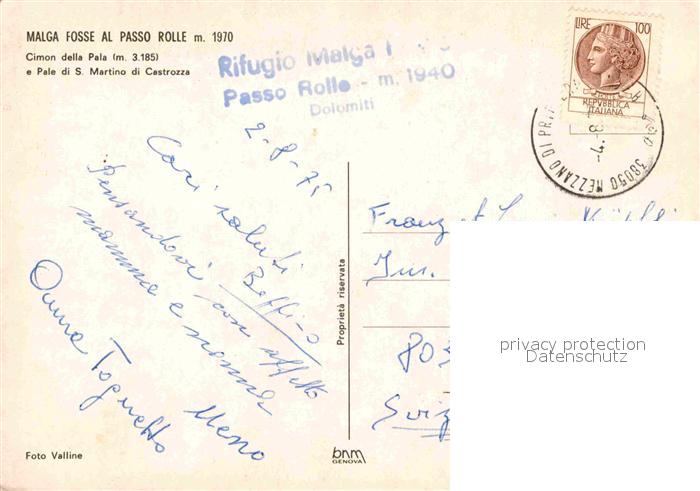 MALGA FOSSE AL PASSO ROLLE m. 1970
Cimon della Pala (m. 3.185)
e Pale di S. Martino di Castrozza
Rifugio Malga
Passo Rolle - m. 1940
Dolomiti
LIRE 100
REPVBBLICA
ITALIANA
38050 MEZZANO DI
2-8-75
Cari saluti
Beppino
Pensandovi con affetto
mamma e nonna
Anna Tognetto
Proprietà riservata
Jus.
803
Sviz
privacy protection
Datenschutz
Foto Valline
bnm
GENOVA